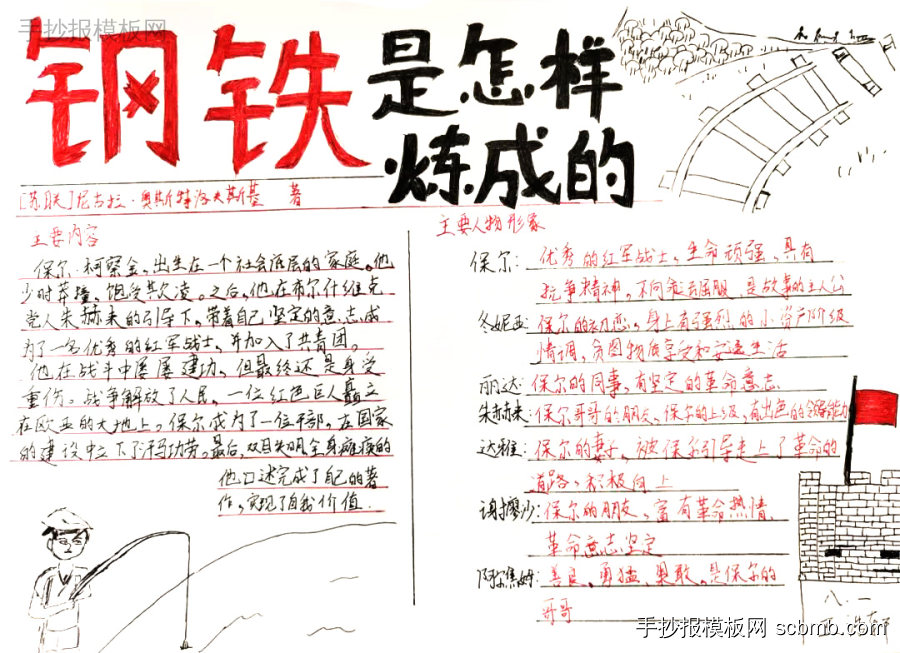 手抄报模板网
钢铁是怎样
炼成的
[苏联]尼古拉·奥斯特洛夫斯基 著
主要内容
保尔·柯察金,出生在一个社会底层的家庭。他
少时莽撞,饱受其欺凌。之后,他在布尔什维克
党人朱赫来的引导下,带着自己坚定的意志成
为了一名优秀的红军战士,并加入了共青团。
他在战斗中屡屡建功,但最终还是身受
重伤。战争解放了人民,一位红色巨人矗立
在欧亚的大地上。保尔成为了一位干部,在国家
的建设中立下了汗马功劳。最后,双目失明,全身瘫痪的
他口述完成了自己的著
作,实现了自我价值.
主要人物形象
保尔:优秀的红军战士,生命顽强,具有
抗争精神,不向命运屈服 是故事的主人公
冬妮亚:保尔的初恋,身上有强烈的小资产阶级
情调,贪图物质享受和安逸生活
丽达:保尔的同事,有坚定的革命意志
朱赫来:保尔哥哥的朋友,保尔的上级,有出色的领导能力
达雅:保尔的妻子,被保尔引导走上了革命的
道路,积极向上
谢廖沙:保尔的朋友,富有革命热情,
革命意志坚定
阿尔焦姆:善良、勇猛、果敢,是保尔的
哥哥
八.一
手抄报模板网 scbmb.com